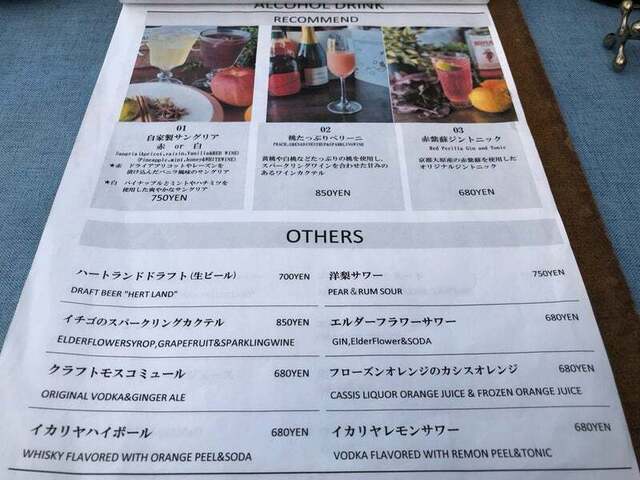 ALCOHOL DRINK
RECOMMEND
01
自家製サングリア
赤 or 白
Sangria(Apricot,raisin,Vanilla&RED WINE)
(Pineapple,mint,Honey&WHITEWINE)
★赤 ドライアプリコットやレーズンを
漬け込んだバニラ風味のサングリア
★白 パイナップルとミントやハチミツを
使用した爽やかなサングリア
750YEN
02
桃たっぷりベリーニ
PEACH,GRENADINESYRUP&SPARKLINGWINE
黄桃や白桃などたっぷりの桃を使用し、
スパークリングワインを合わせた甘みの
あるワインカクテル
850YEN
03
赤紫蘇ジントニック
Red Perilla Gin and Tonic
京都大原産の赤紫蘇を使用した
オリジナルジントニック
680YEN
OTHERS
ハートランドドラフト(生ビール) 700YEN
DRAFT BEER "HERT LAND"
イチゴのスパークリングカクテル 850YEN
ELDERFLOWERSYROP,GRAPEFRUIT&SPARKLINGWINE
クラフトモスコミュール 680YEN
ORIGINAL VODKA&GINGER ALE
イカリヤハイボール 680YEN
WHISKY FLAVORED WITH ORANGE PEEL&SODA
洋梨サワー 750YEN
PEAR＆RUM SOUR
エルダーフラワーサワー 680YEN
GIN,ElderFlower&SODA
フローズンオレンジのカシスオレンジ 680YEN
CASSIS LIQUOR ORANGE JUICE & FROZEN ORANGE JUICE
イカリヤレモンサワー 680YEN
VODKA FLAVORED WITH REMON PEEL&TONIC